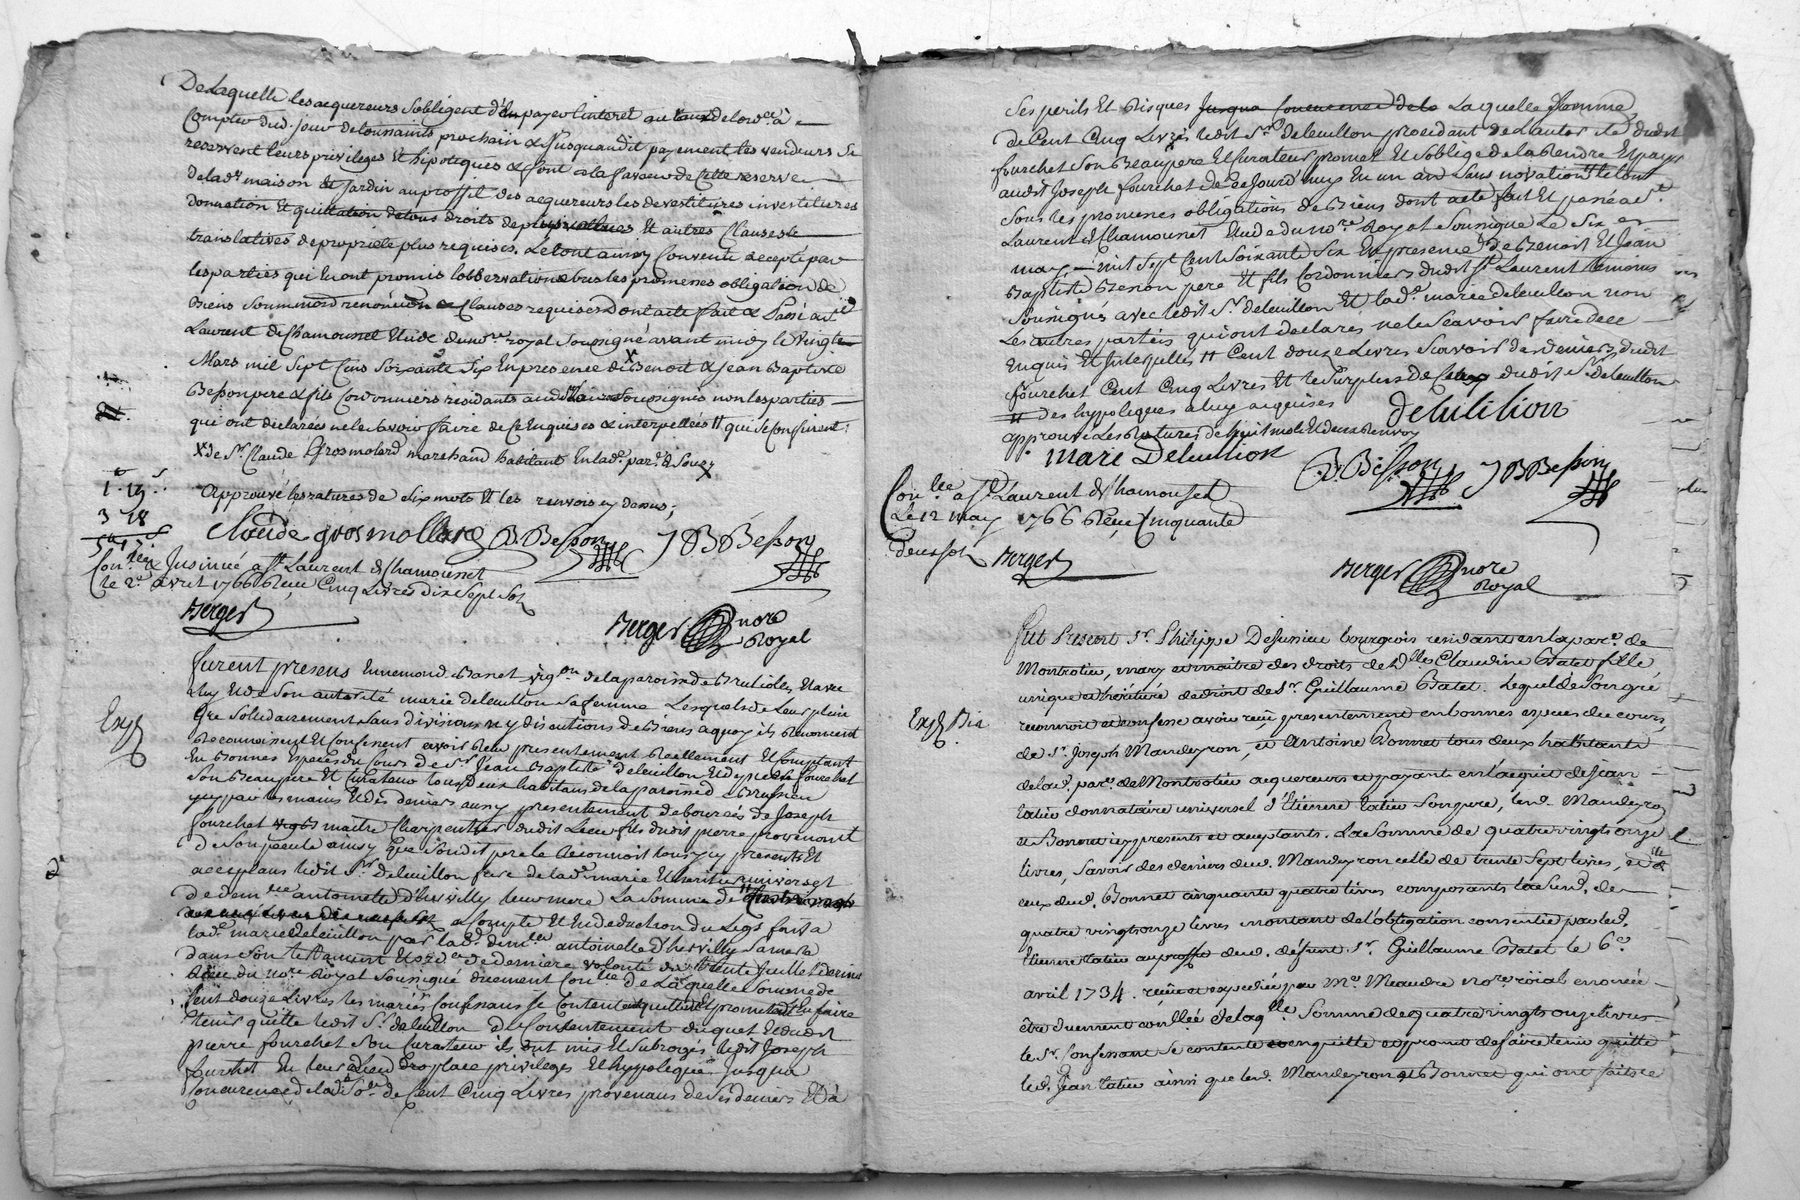 De Laquelle les acquereurs sobligent d'en payer linteret au taux de lord.ce à
Compter dud. jour de toussaints prochain & jusquaudit payement, les vendeurs se
reservent leurs privileges Et hipoteques & font a la faveur de Cette reserve
de lad.e maison Et jardin au proffit des acquereurs les devestitures investitures
donnation Et quittation de tous droits de plus vallues Et autres Clauses
translatives de propriété plus requises. Le tout ainsy Convenu accepté par
les parties qui En ont promis lobbservation sous les promesses obligation de
Biens soummission renonciation & Clauses requises dont acte fait & Passé a St
Laurent de Chamousset Etude du no.re royal soussigné avant midy le vingt
Mars mil sept Cens soixante six En presence de X Benoit & Jean Baptiste
Besson pere & fils Cordonniers residants audit Laurent soussignés non les parties
qui ont declarées ne le scavoir faire de Ce Enquises & interpellées # qui se Consurent
X de Sr. Claude Grosmolard marchand habitant En lad.e par.e de Souzy X
Approuvé les ratures de six mots & les renvois cy dessus;
1. 19
3 18
5 17
Claude grosmollard B Besson J B Besson
Con.lé & Insinué a St. Laurent de Chamousset
le 2.e avril 1766 Reçu Cinq Livres dix sept s.
Berger
Berger no.re Royal
Furent presens Ennemond Banet vig.on de la paroisse de Brullioles Et avec
luy Et de son autorité marie deleuillon sa femme Lesquels de Leur plein
Gré solidairement sans division ny discutions de Biens a quoy ils Renoncent
Exp.
Reconnoissent Et Confessent avoir Reçu presentement Reellement Et Comptant
En Bonnes Especes du Cours de Sr. Jean Baptiste deleuillon Et de pierre fourchet
son Beaupere Et Curateur tous deux habitans de la paroisse de Brussieu
par les mains Et des deniers aussy presentement deboursés de Joseph
fourchet maitre Charpentier dudit Lieu fils dudit pierre provenant
de son pecule ainsy que sondit pere le Reconnoit tous icy presents Et
acceptans ledit Sr. deleuillon frere de lad.e marie Et heritier universel
de dem.elle antoinette d'hervilly leur mere La somme de
a Compte Et En deduction du Legs fait a
lad.e marie deleuillon par lad.e dem.elle antoinette d'hervilly sa mere
dans son testament Et ord.ce de derniere volonté du trente Juillet dernier
Reçu du no.re Royal soussigné duement Con.lé de Laquelle somme de
Cent douze Livres les mariés Confessans se Contentent quittent Et promettent En faire
tenir quitte ledit Sr. deleuillon du Consentement duquel Et dudit
pierre fourchet son Curateur ils ont mis Et subrogés ledit Joseph
fourchet En leur Lieu Droit place privileges Et hypoteque Jusqua
Concurence de lad.e So.e de Cent Cinq Livres provenans de ses deniers Et a
ses perils Et Risques Laquelle somme
de Cent Cinq Livres ledit Sr. deleuillon procedant de Lautorité dudit
fourchet son Beaupere Et Curateur promet Et soblige de la Rendre Et payer
audit Joseph fourchet de Ce Jourd'huy En un an sans novation le tout
sous les promesses obligations de Biens dont acte fait Et passé a St.
Laurent de Chamousset Etude du no.re Royal soussigné Le six
may mil sept Cent soixante six En presence de Benoit Et Jean
Baptiste Besson pere Et fils Cordonniers dudit St. Laurent temoins
soussignés avec ledit Sr. deleuillon Et lad.e marie deleuillon non
Les autres parties qui ont declarés ne le scavoir faire de Ce
Enquis Et Interpellés # Cent douze Livres scavoir des deniers dudit
fourchet Cent Cinq Livres Et le surplus de Ceux dudit Sr. deleuillon
# des hypoteques a luy acquises
approuvé Les Ratures de huit mots Et deux Renvoy
deleullion
marie Deleullion B. Besson J B Besson
Con.lée a St. Laurent de Chamousset
Le 12 may 1766 Reçu Cinquante
deux sols Berger
Berger no.re Royal
Fut Present Sr. Philippe Dessurieu bourgeois residant en la par.e de
Montrotier, mary et maitre des droits de D.lles Claudine Batet fille
unique et héritière de droit de Sr. Guillaume Batet. Lequel de son gré
Exp. Bis
reconnoit et confesse avoir reçu presentement en bonnes especes du cours,
de Sr. Joseph Mandeyron, et Antoine Bonnet tous deux habitants
de lad. par.e de Montrotier acquereurs et payants en l'acquit de Jean
tatier donnataire universel d'Etienne tatier son pere, led. Mandeyron
et Bonnet icy presents et acceptants. La somme de quatre vingts onze
livres, savoir des deniers dud. Mandeyron celle de trente sept livres, et de
ceux dud. Bonnet cinquante quatre livres composants lad. somme de
quatre vingts onze livres montant de l'obligation consentie par led.
Etienne tatier au proffit dud. défunt Sr. Guillaume Batet le 6.e
avril 1734. reçue et expediée par M.e Meaudre no.re roial enoncée
être duement con.llée de laq.lle somme de quatre vingts onze livres
le Sr. Confessant se contente et en quitte et promet de faire tenir quitte
led. Jean tatier ainsi que led. Mandeyron et Bonnet qui ont fait le